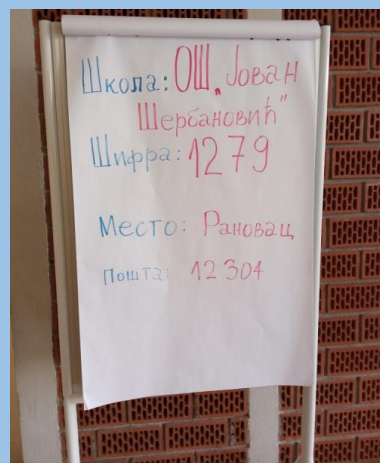 Школа: ОШ „Јован
Шербановић"
Шифра: 1279
Место: Рановац
Пошта: 12304